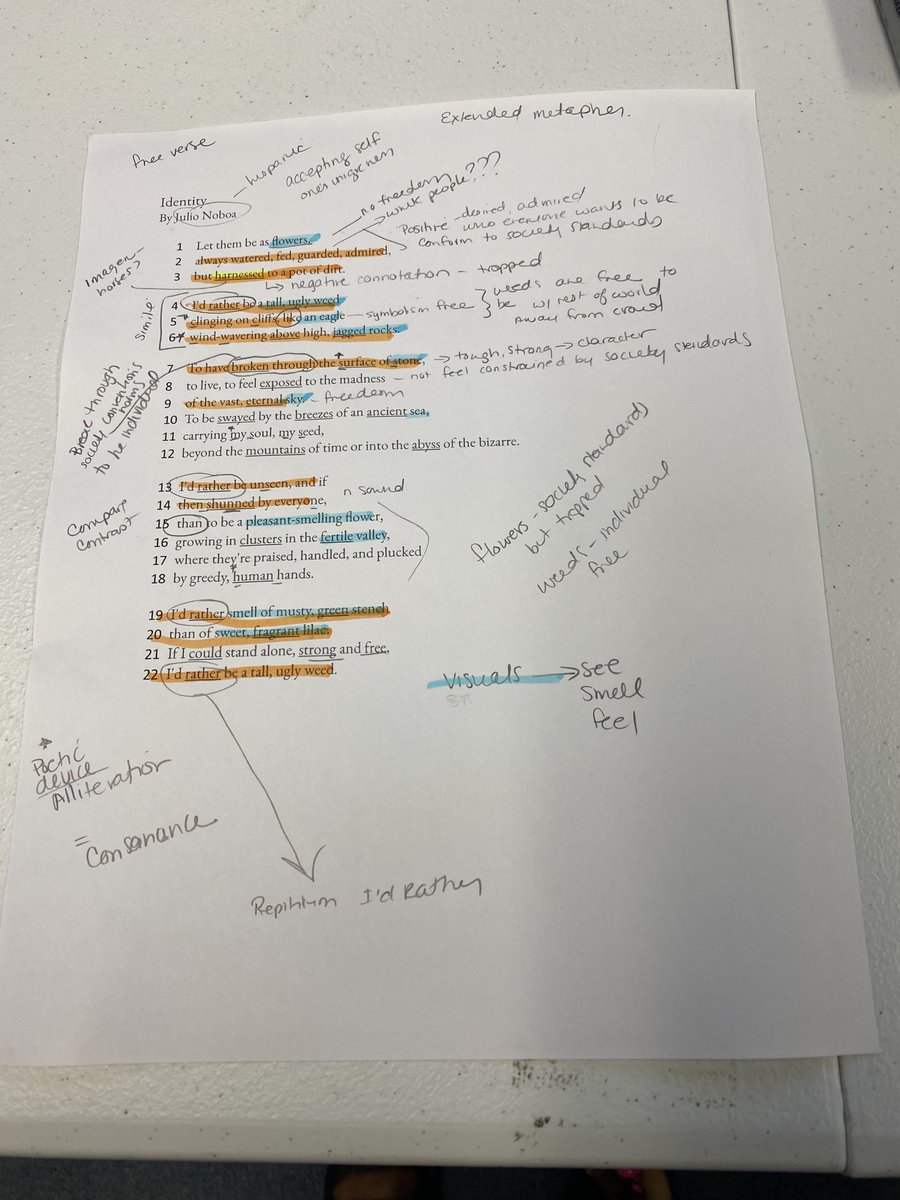 Extended metapher.
free verse
hispanic
accepting self
ones uniqueness
Identity
By Julio Noboa
no freedom
weak people???
Positive - desired, admired
who everyone wants to be
conform to society standards
1 Let them be as flowers,
2 always watered, fed, guarded, admired,
3 but harnessed to a pot of dirt.
Imagen
horses?
negative connotation - trapped
Simile
4 I'd rather be a tall, ugly weed
5 clinging on cliffs, like an eagle
6 wind-wavering above high, jagged rocks.
symbolism free
weeds are free to
be w/ rest of world
away from crowd
7 To have broken through the surface of stone,
tough, strong → character
8 to live, to feel exposed to the madness
not feel constrained by society standards
9 of the vast, eternal sky.
freedom
10 To be swayed by the breezes of an ancient sea,
11 carrying my soul, my seed,
12 beyond the mountains of time or into the abyss of the bizarre.
Break through
society conventions
norms
to be individual
13 I'd rather be unseen, and if
14 then shunned by everyone,
15 than to be a pleasant-smelling flower,
16 growing in clusters in the fertile valley,
17 where they're praised, handled, and plucked
18 by greedy, human hands.
n sound
Compare
contrast
flowers - society standards
but trapped
weeds - individual
free
19 I'd rather smell of musty, green stench
20 than of sweet, fragrant lilac.
21 If I could stand alone, strong and free,
22 I'd rather be a tall, ugly weed.
Visuals → see
smell
feel
* Poetic
device
Alliteration
= Consanance
Repihtium I'd Rather